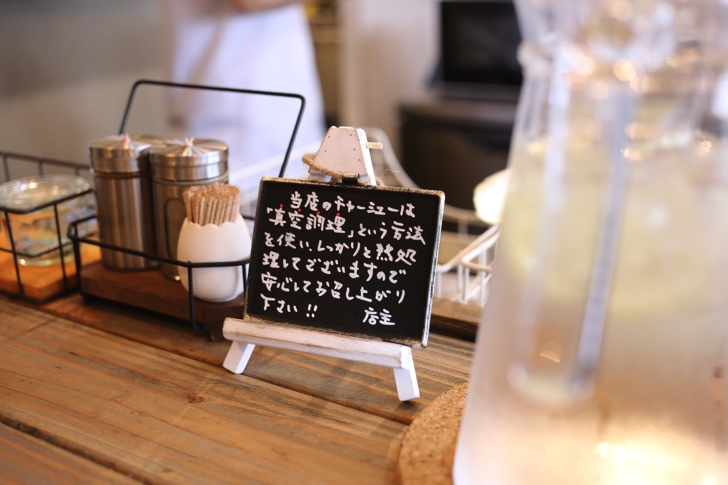 当店のチャーシューは
「真空調理」という方法
を使い、しっかりと熱処
理してございますので
安心してお召し上がり
下さい!! 店主